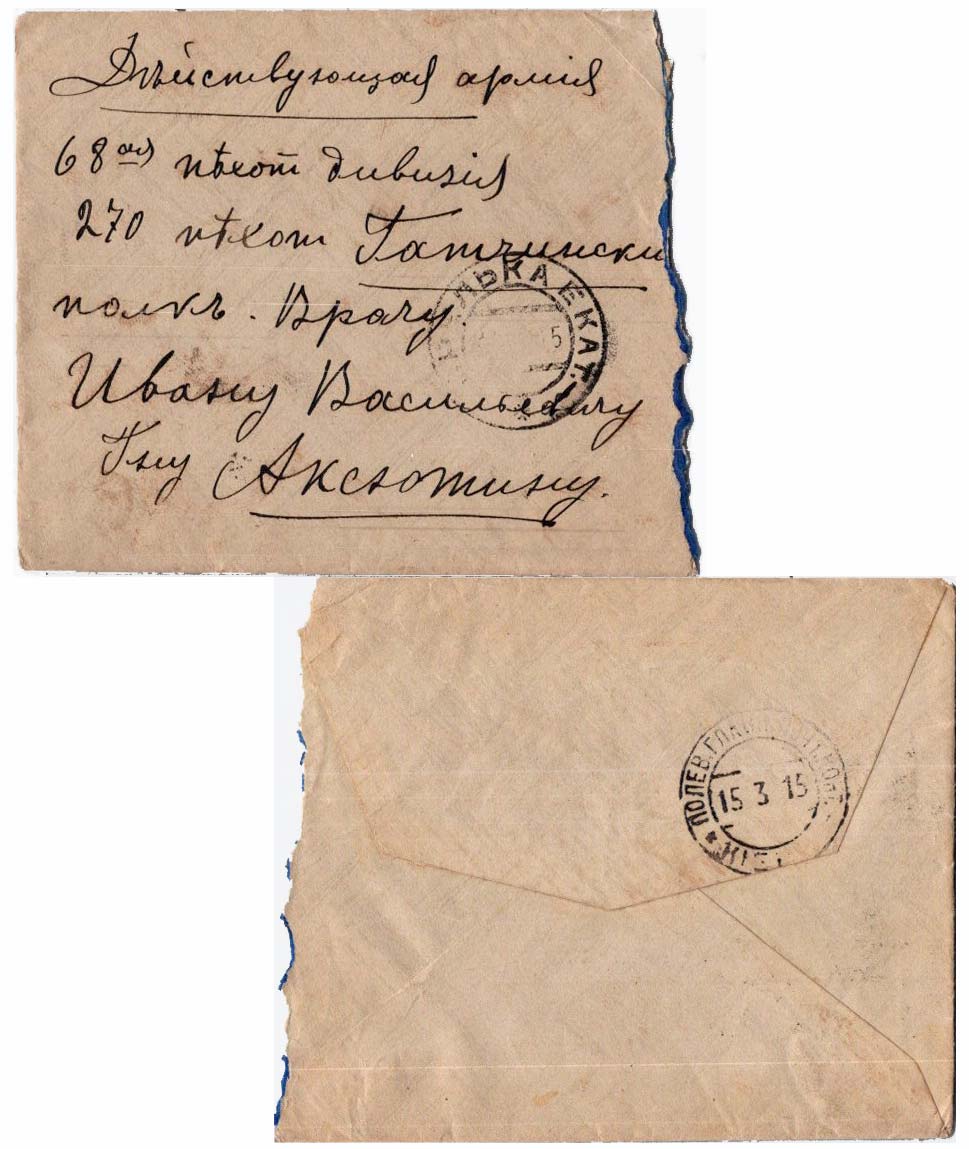 Дѣйствующая армія
68ая пѣхот дивизія
270 пѣхот Гатчински
полкъ. Врачу.
Ивану Васильевичу
Гну Аксютину.
ЛЬКА ЕКАТ.
5
ПОЛЕВ.
15 3 15